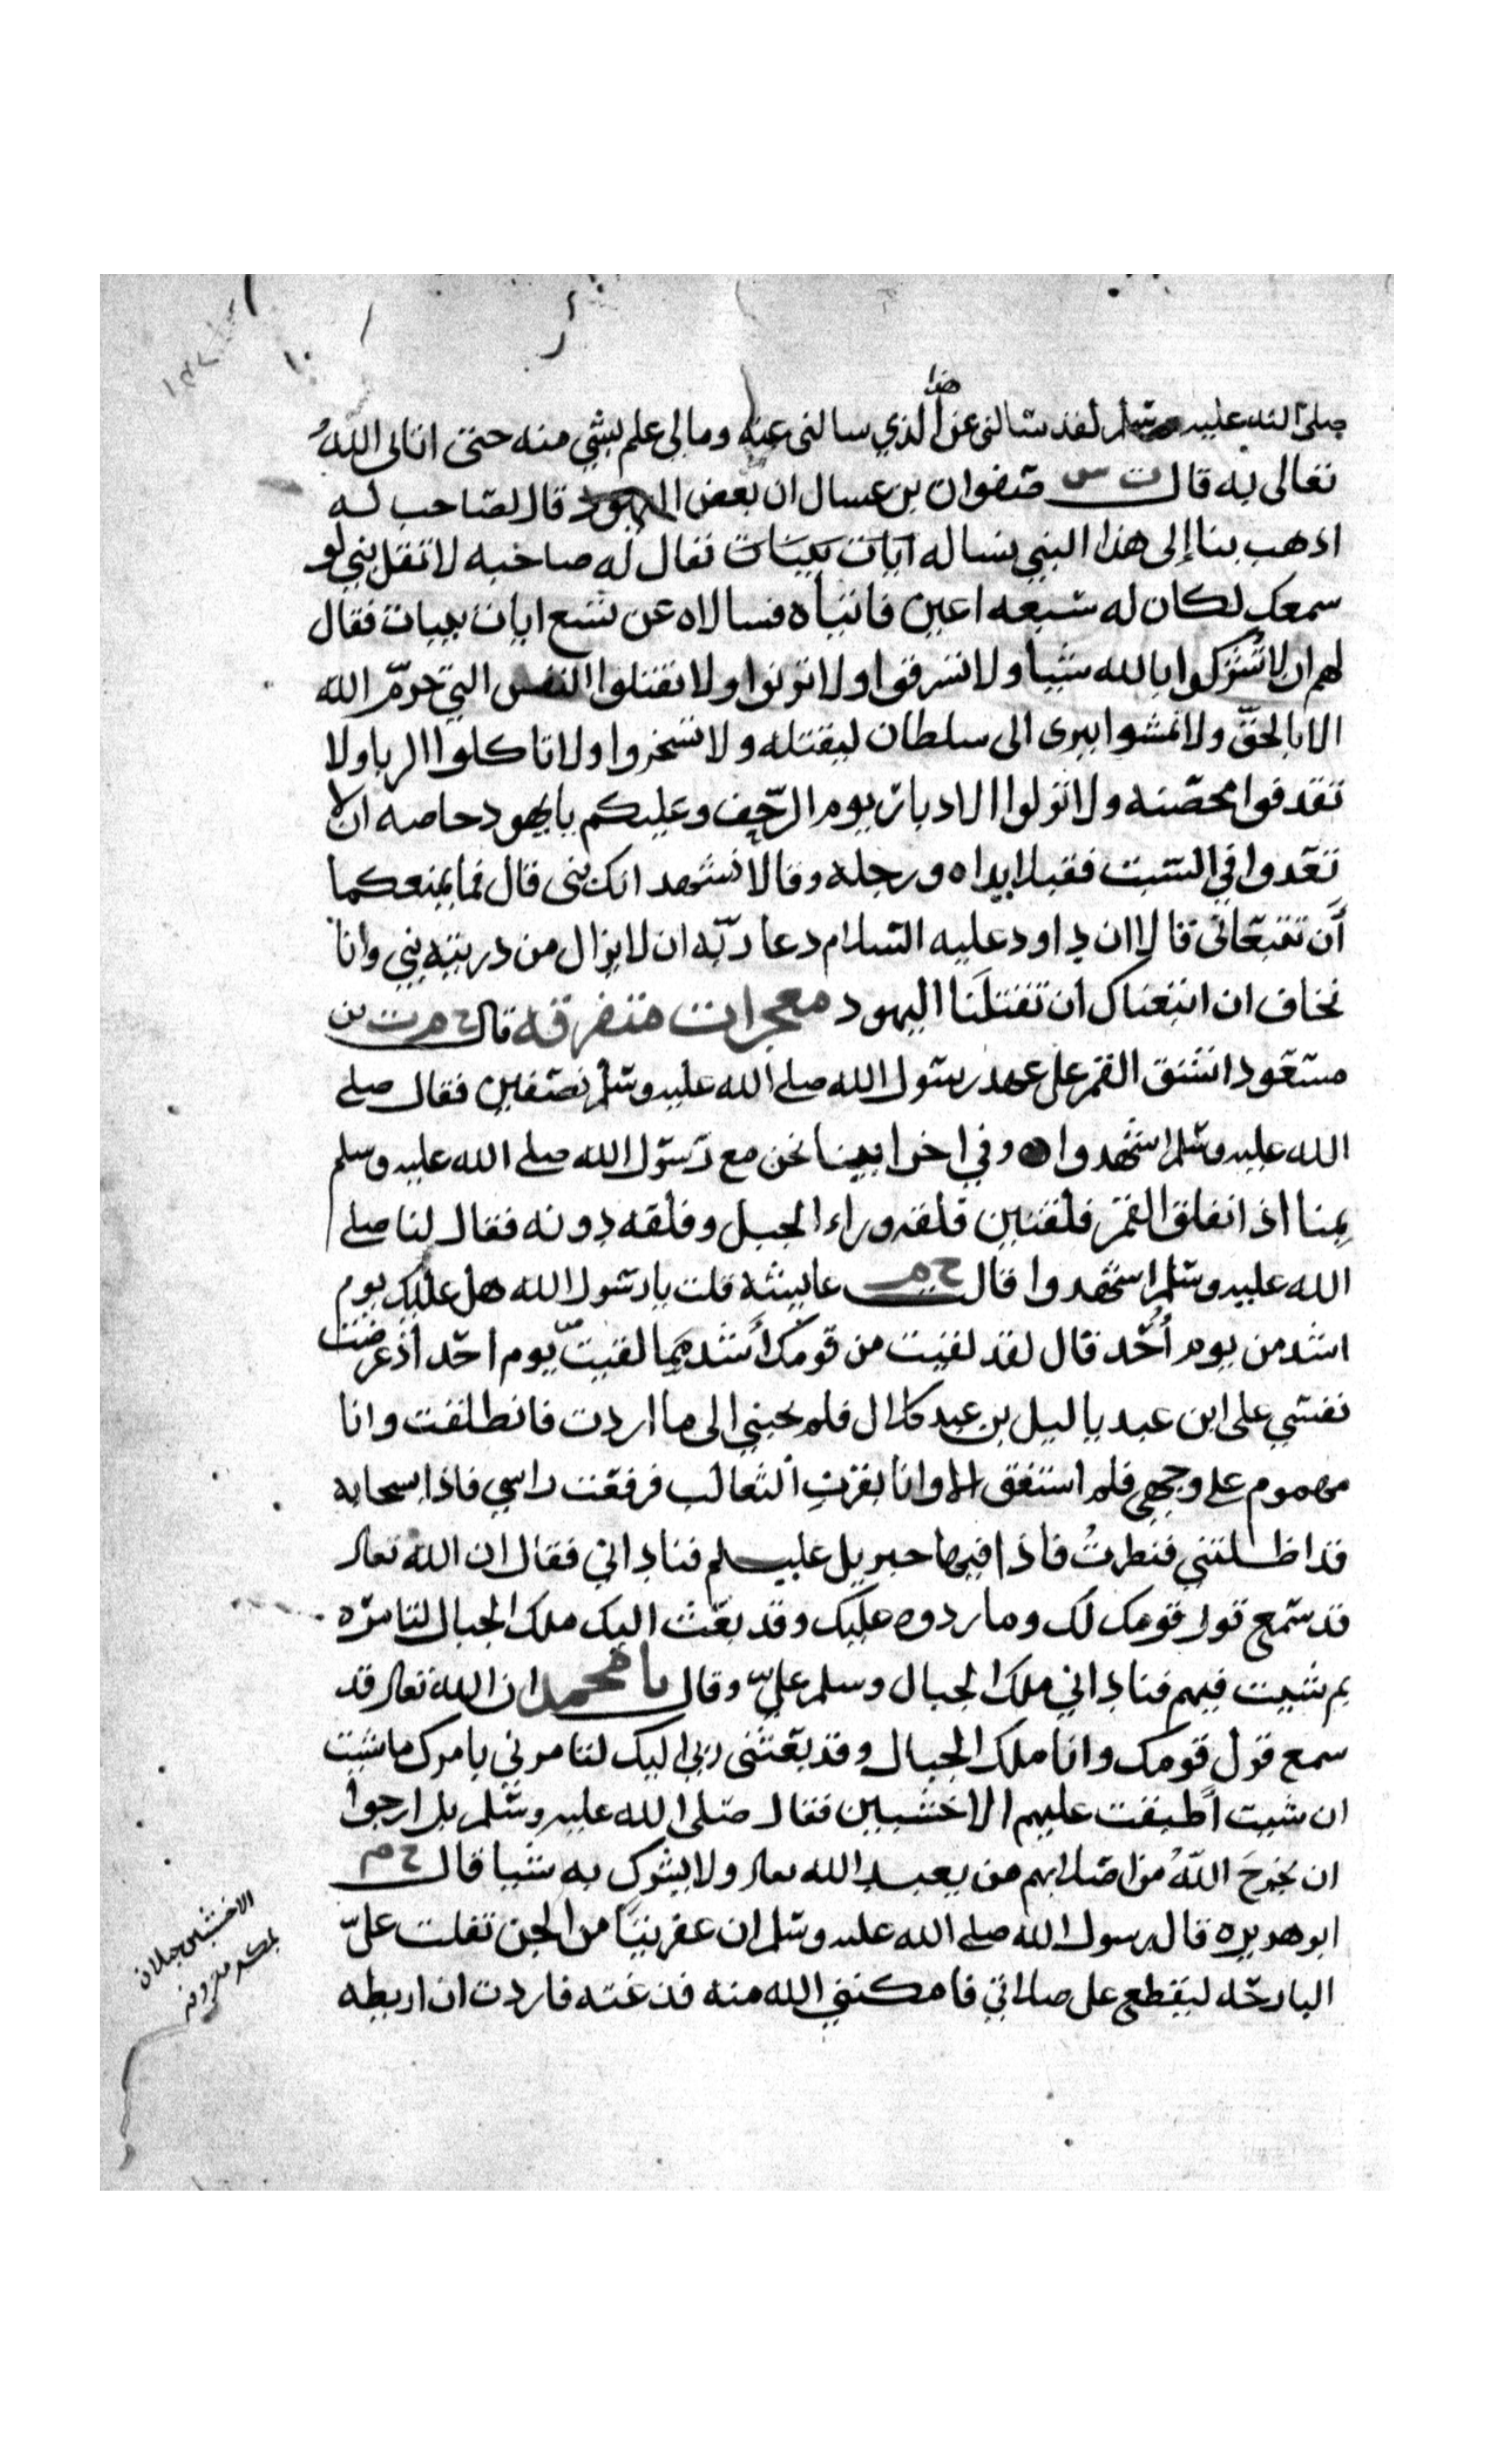 صلى الله عليه وسلم لقد سالنى هذا عن الذي سالنى عنه ومالى علم بشي منه حتى اتانى اللهُ
تعالى به قال ت س صفوان بن عسال ان بعض اليهود قال لصاحب له
اذهب بنا إلى هذا النبي نساله ايات بينات فقال له صاحبه لا تقل نبي لو
سمعك لكان له سبعه اعين فاتياه فسالاه عن تسع ايات بينات فقال
لهم ان لا تشركوا بالله شيا ولا تسرقوا ولا تزنوا ولا تقتلوا النفس التي حرّم الله
الا بالحقّ ولا تمشوا ببرى الى سلطان ليقتله ولا تسخروا ولا تاكلوا الربا ولا
تقدفوا محصنه ولا تولوا الادبار يوم الزّحف وعليكم يا يهود خاصه ان لا
تعدوا في السبت فقبلا يداه ورجله وقالا نشهد انك نبى قال فما يمنعكما
أن تتبعانى قالا ان داود عليه السلام دعا ربّه ان لا يزال من دريته نبي وانا
نخاف ان اتبعناك ان تقتلَنا اليهود معجرات متفرقه قال خ م ت بن
مسعود انشق القمر على عهد رسول الله صلى الله عليه وسلم نصفين فقال صلى
الله عليه وسلم اشهدوا وفي اخرا بينا نحن مع رسول الله صلى الله عليه وسلم
بمنا اذ انفلق القمر فلقتين فلقه وراء الجبل وفلقه دونه فقال لنا صلى
الله عليه وسلم اشهدوا قال خ م عايشه قلت يا رسول الله هل عليك يوم
اشد من يوم اُحُد قال لقد لقيت من قومك أشد مما لقيت يوم احد اذ عرضت
نفسي على ابن عبد ياليل بن عبد كلال فلم يجبني الى ما اردت فانطلقت وانا
مهموم على وجهي فلم استفق الا وانا بقرنِ الثعالب فرفعت راسي فاذا سحابه
قد اظلتني فنظرتُ فاذا فيها جبريل عليسلم فناداني فقال ان الله تعالى
قد سمع قول قومك لك وما ردوه عليك وقد بعث اليك ملك الجبال لتامره
بم شيت فيهم فناداني ملك الجبال وسلم عليّ وقال يا محمد ان الله تعالى قد
سمع قول قومك وانا ملك الجبال وقد بعثنى ربي اليك لتامرني بامرك ما شيت
ان شيت أطبقت عليهم الاخشبين فقال صلى الله عليه وسلم بل ارجوا
ان يخرجَ اللهُ من اصلابهم من يعبد الله تعالى ولا يشرك به شيا قال خ م
ابو هريره قال رسول الله صلى الله عليه وسلم ان عفريتًا من الجن تفلت علىّ
البارحه ليقطع على صلاتي فامكنني الله منه فذعته فاردت ان اربطه
الاخشبين جبلان
بمكه